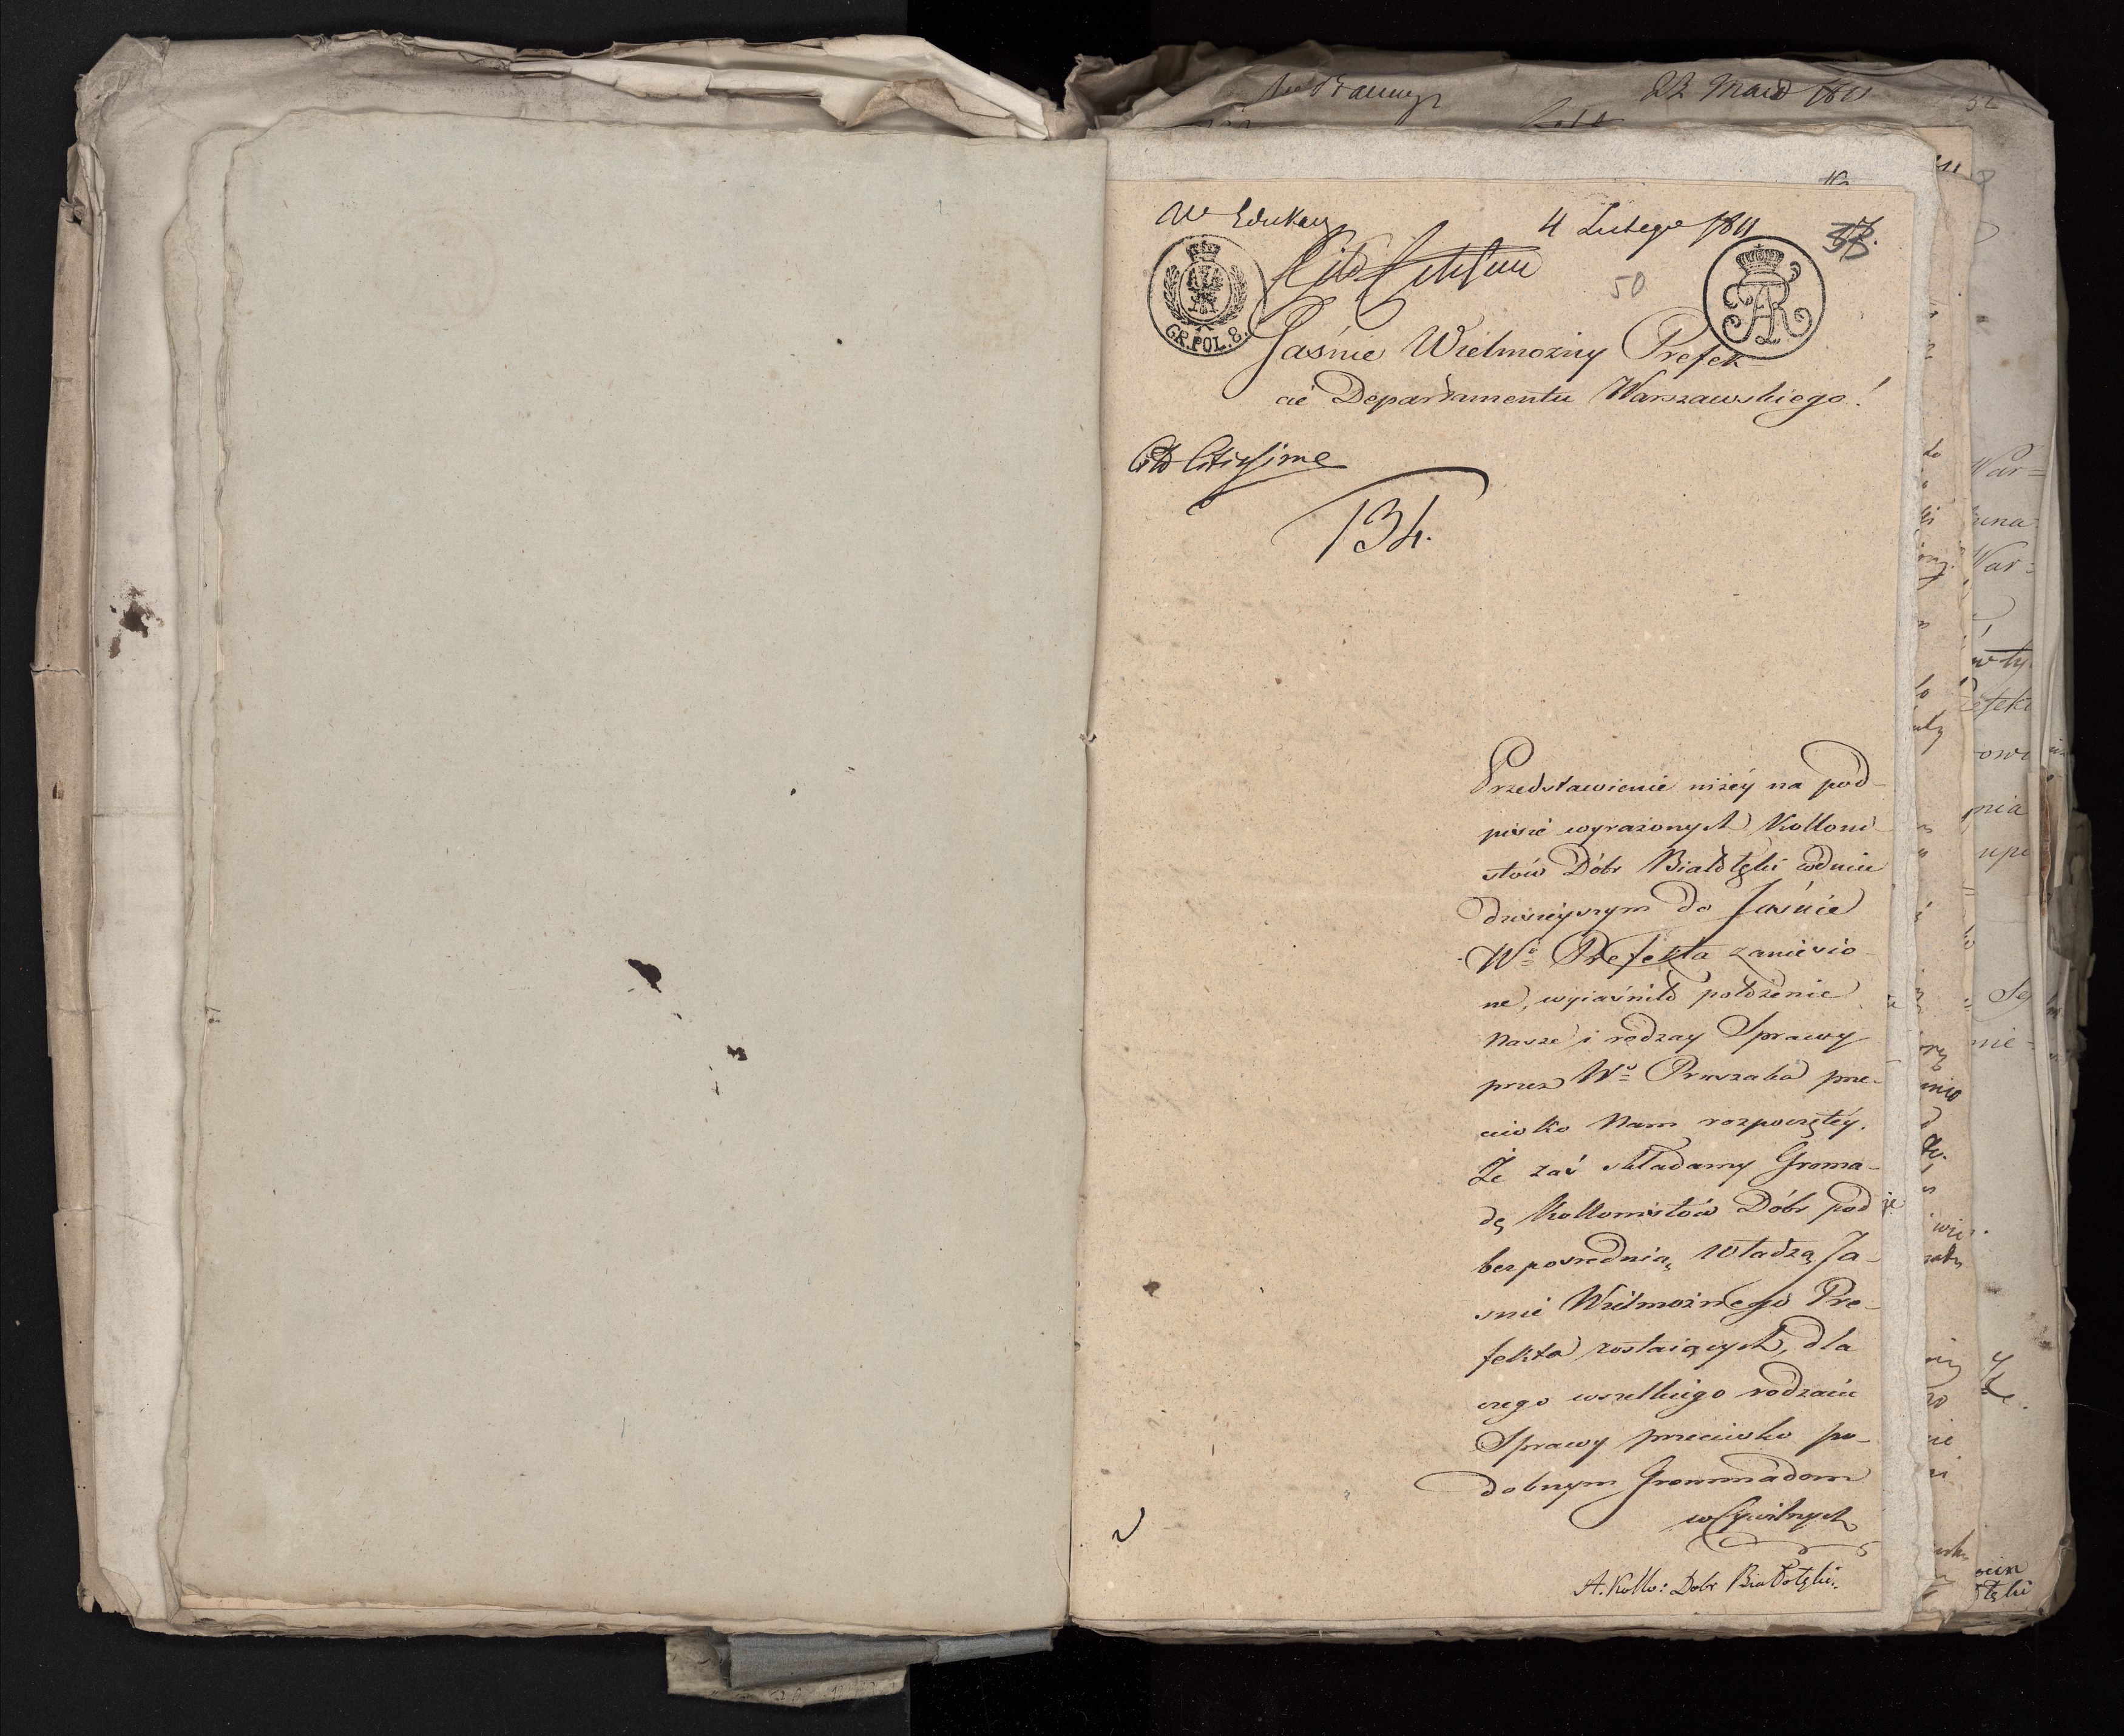 4 Lutego 1811
50
GR. POL. 8.
Jaśnie Wielmożny Prefek-
cie Departamentu Warszawskiego!
Cito Citissime
134.
Przedstawienie niżéy na pod-
pisie wyrażonych Kolloni-
stów Dóbr Białołęki w dniu
dzisieyszym do Jaśnie
Wo Prefekta zaniesio-
ne, wyiaśniło położenie
Nasze i rodzay Sprawy
przez Wo Pruszaka prze-
ciwko Nam rozpoczętéy.
Że zaś składamy Groma-
dę Kollonistów Dóbr pod
bezpośrednią władzą Ja-
śnie Wielmożnego Pre-
fekta zostaiących, dla
czego wszelkiego rodzaiu
Sprawy przeciwko po-
dobnym Grommadom
w Cywilnych
A. Kollo: Dobr Białołęki.
22 Maia 1811